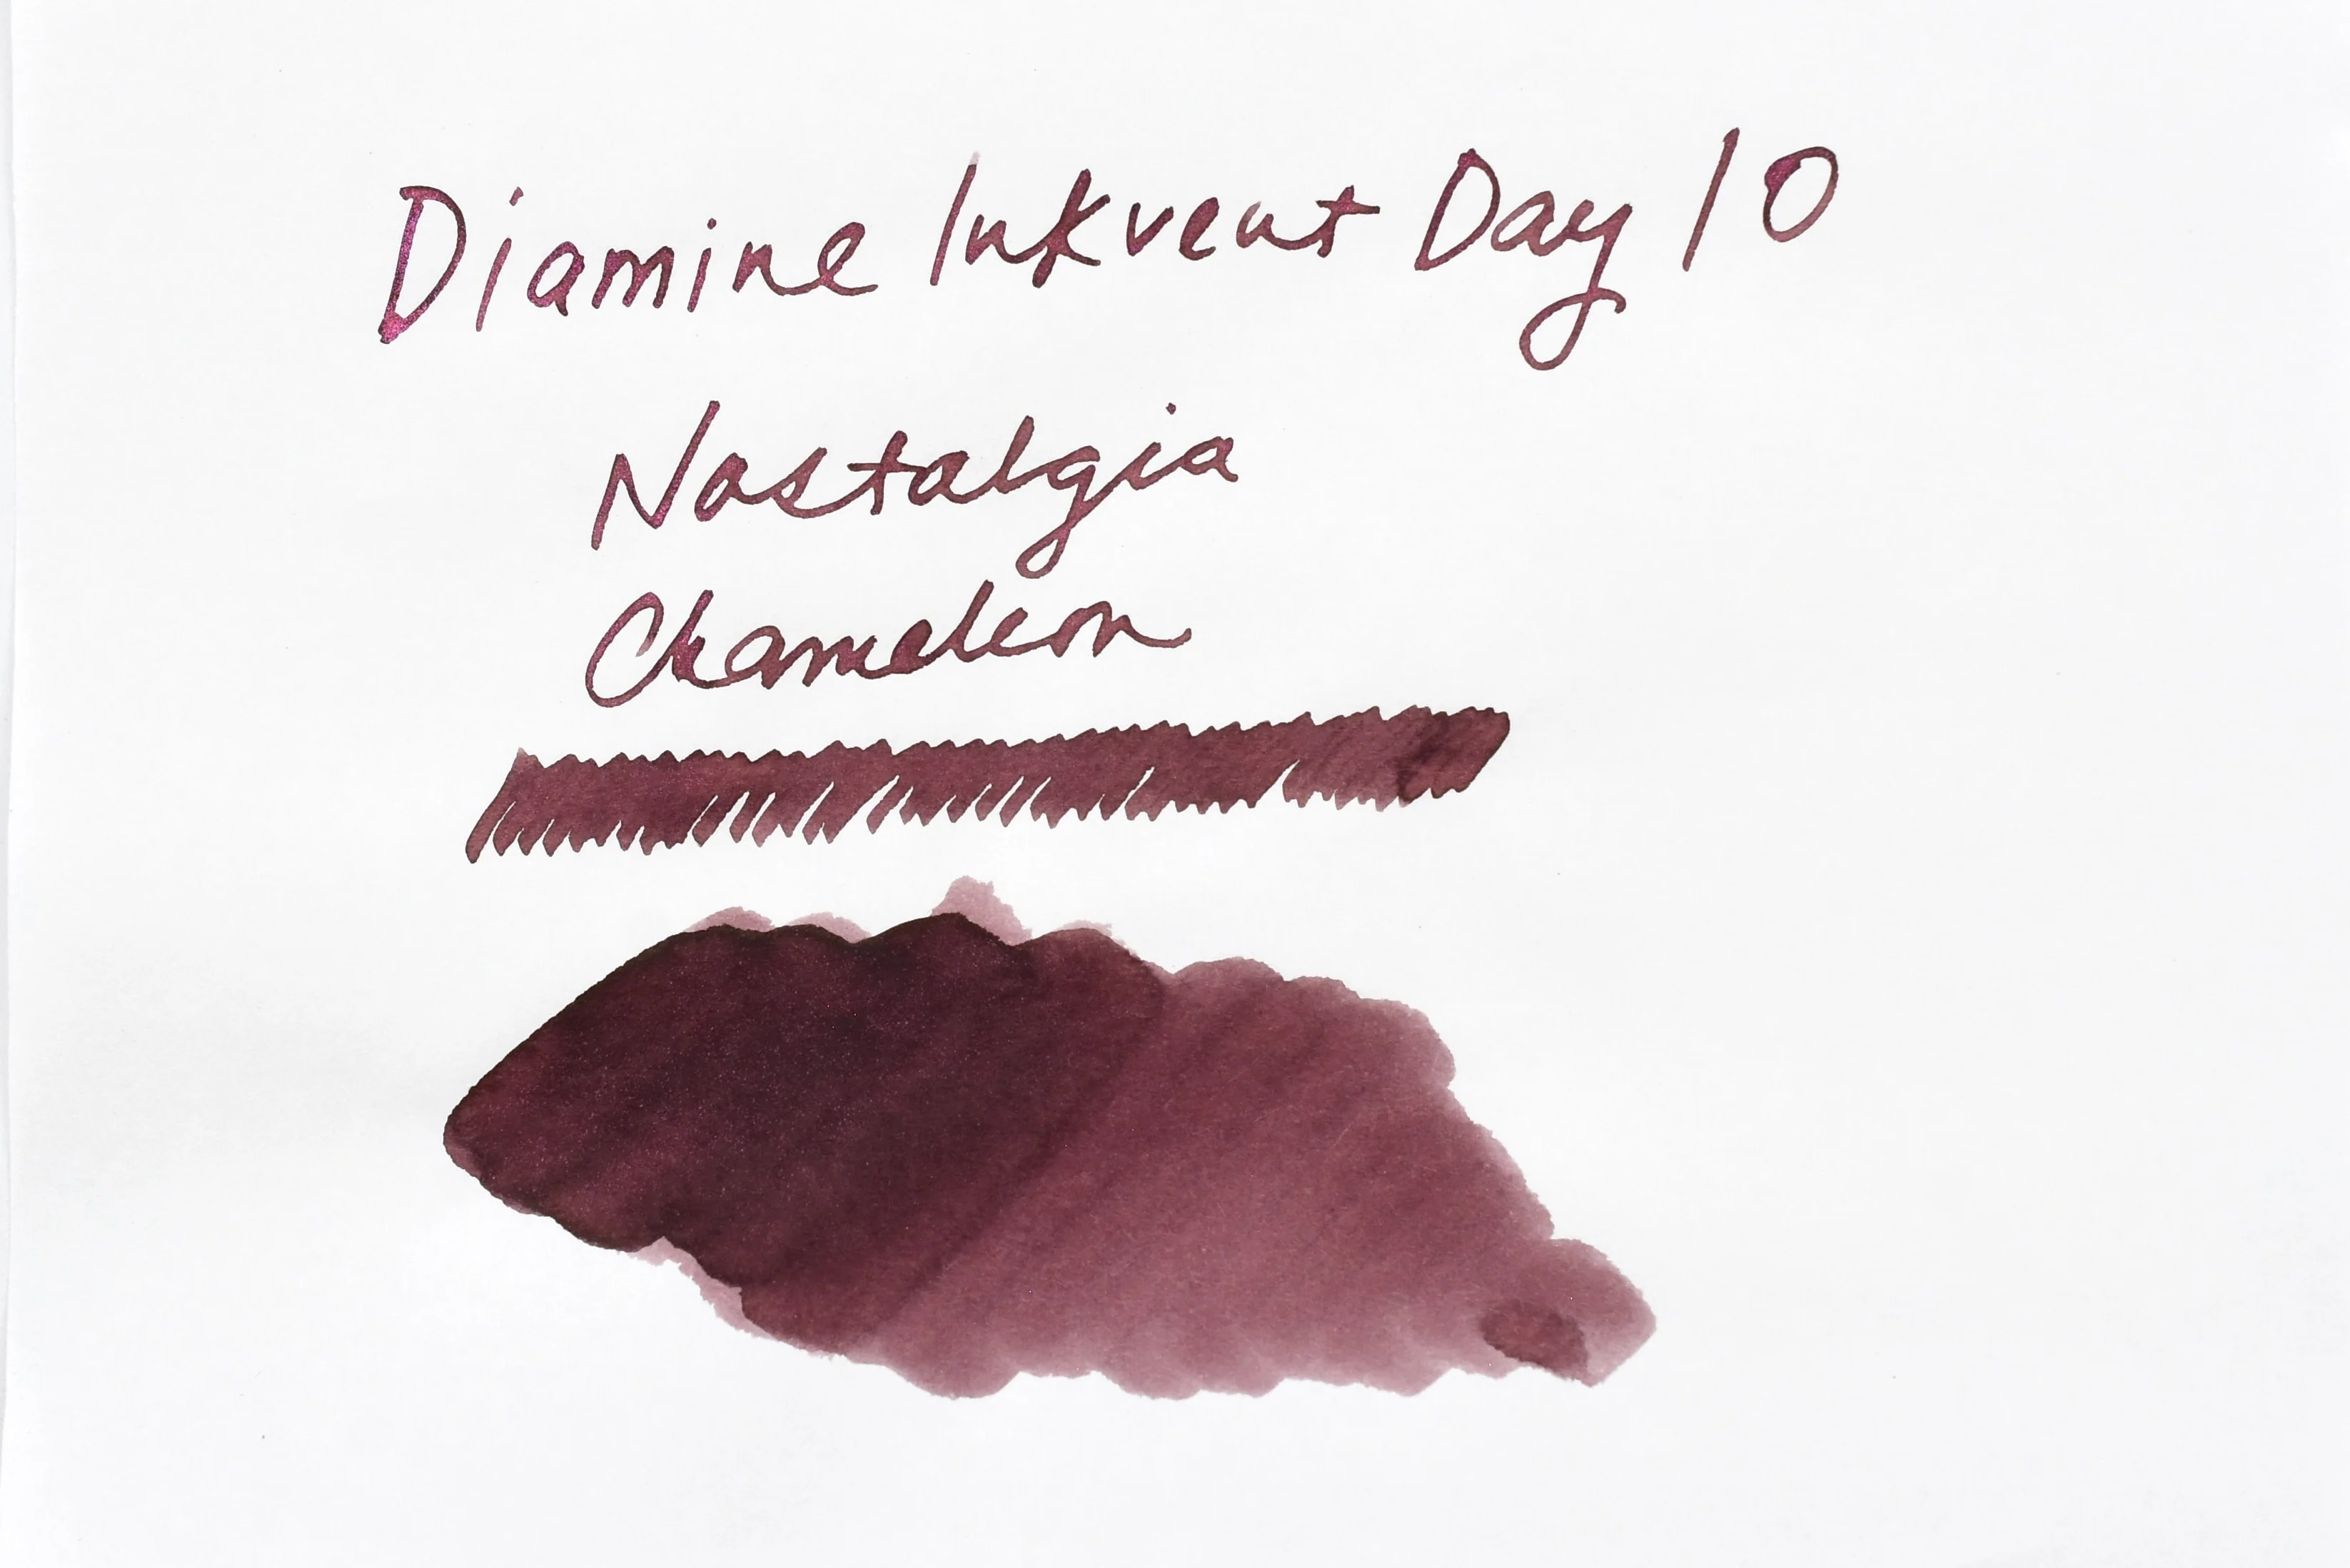 Diamine Inkvent Day 10
Nostalgia
Chameleon